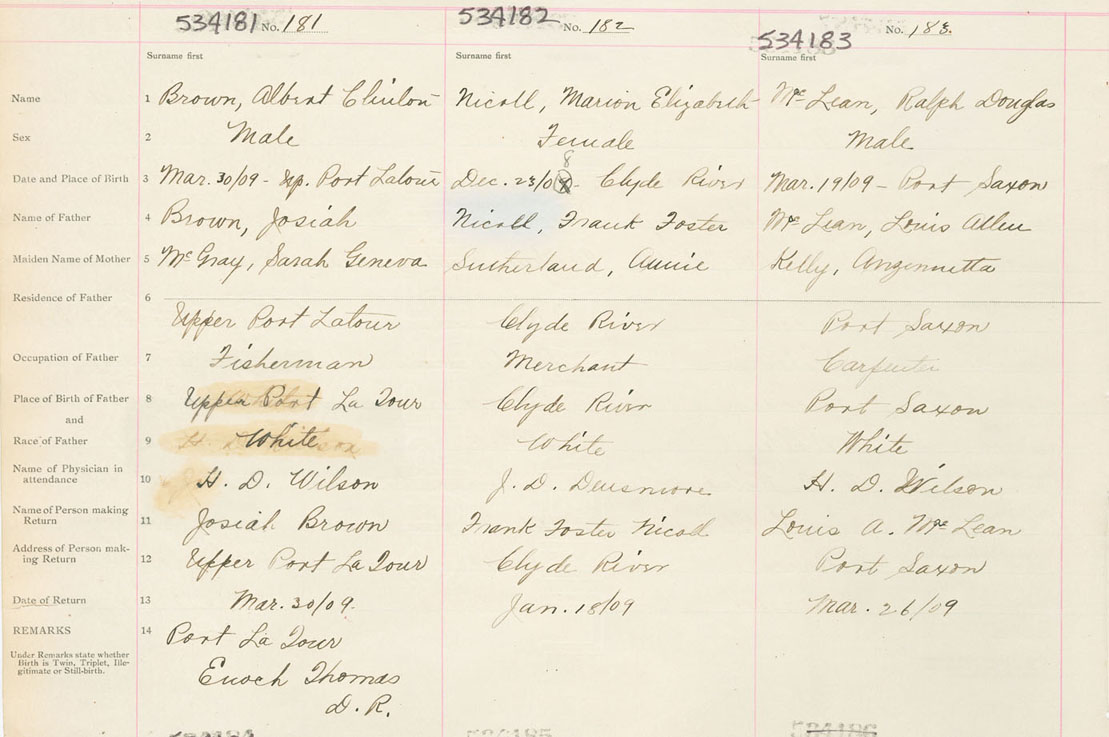 534181 No. 181 534182 No. 182 534183 No. 183
Surname first Surname first Surname first
Name 1 Brown, Albert Nicoll, Marion Elizabeth McLean, Ralph Douglas
Sex 2 Male Female Male
8
Date and Place of Birth 3 Mar. 30/09 - Up. Port Latour Dec. 23/0 - Clyde River Mar. 19/09 - Port Saxon
Name of Father 4 Brown, Josiah Nicoll, Frank Foster McLean, Louis Allen
Maiden Name of Mother 5 McGray, Sarah Geneva Sutherland, Annie Kelly,
Residence of Father 6
Upper Port Latour Clyde River Port Saxon
Occupation of Father 7 Fisherman Merchant Carpenter
Place of Birth of Father 8 Upper Port La Tour Clyde River Port Saxon
and
Race of Father 9 White White White
Name of Physician in
attendance 10 H. D. Wilson J. D. Densmore H. D. Wilson
Name of Person making
Return 11 Josiah Brown Frank Foster Nicoll Louis A. McLean
Address of Person mak-
ing Return 12 Upper Port La Tour Clyde River Port Saxon
Date of Return 13 Mar. 30/09. Jan. 18/09 Mar. 26/09
REMARKS 14 Port La Tour
Under Remarks state whether
Birth is Twin, Triplet, Ille-
gitimate or Still-birth.
Enoch Thomas
D. R.